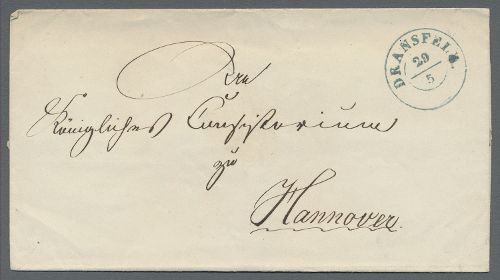 DRANSFELD.
29
5
An
Königliches Consistorium
zu
Hannover.